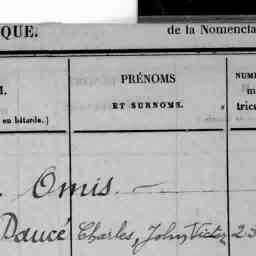 QUE. de la Nomencla
M. PRÉNOMS NUM
ET SURNOMS. m
en bâtarde.) tric
Omis. —
Daucé Charles, John, Victor 23